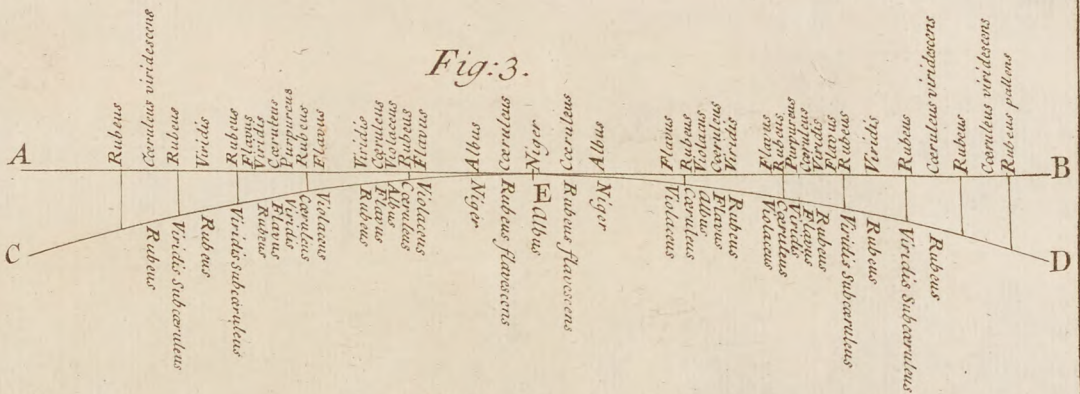 Fig: 3.
A
Rubeus
Cæruleus viridescens
Rubeus
Viridis
Rubeus
Flavus
Viridis
Cæruleus
Purpureus
Rubeus
Flavus
Viridis
Cæruleus
Violaceus
Rubeus
Flavus
Albus
Cæruleus
Niger
Cæruleus
Albus
Flavus
Rubeus
Cæruleus
Viridis
Flavus
Rubeus
Purpureus
Cæruleus
Viridis
Flavus
Rubeus
Viridis
Rubeus
Cæruleus viridescens
Rubeus
Cæruleus viridescens
Rubeus pallens
B
C
Rubeus
Viridis Subcæruleus
Rubeus
Viridis Subcæruleus
Rubeus
Flavus
Viridis
Cæruleus
Violaceus
Rubeus
Flavus
Albus
Cæruleus
Violaceus
Niger
Rubeus flavescens
E
Albus
Rubeus flavescens
Niger
Violaceus
Cæruleus
Albus
Flavus
Rubeus
Violaceus
Cæruleus
Viridis
Flavus
Rubeus
Viridis Subcæruleus
Rubeus
Viridis Subcæruleus
Rubeus
D